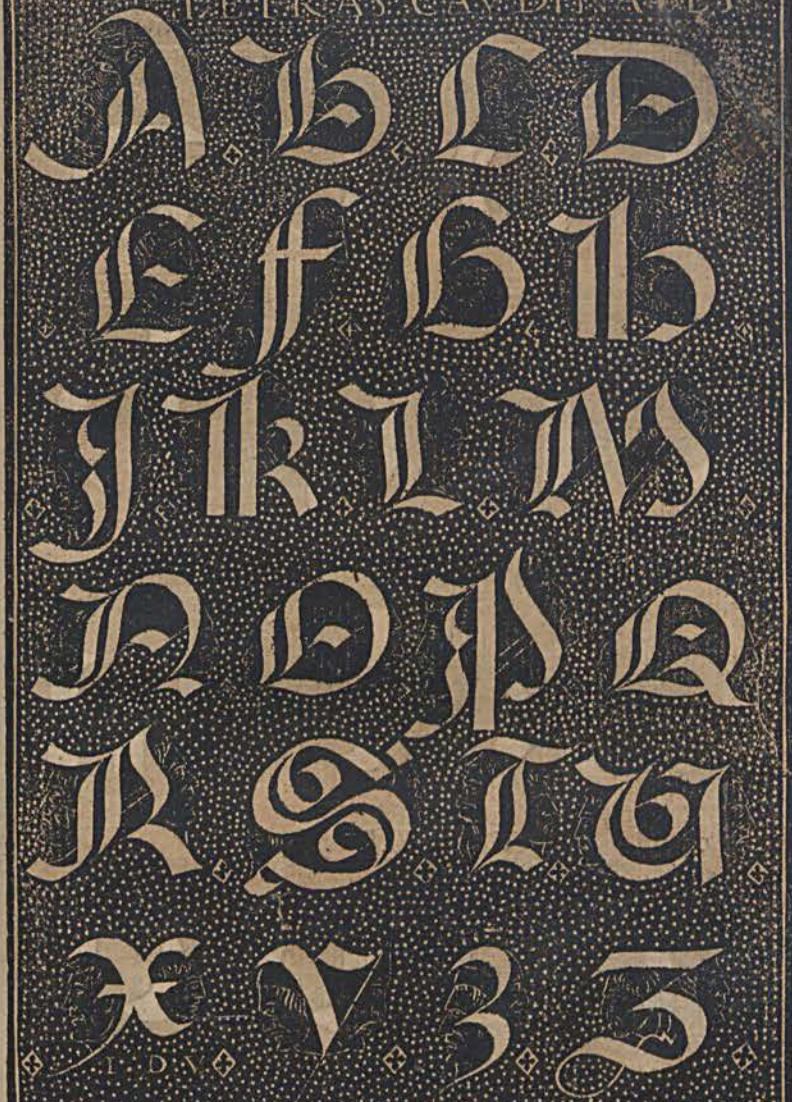 LETRAS CAVDINALES
A B C D
E f G h
J k L M
N O P Q
R S T U
X V 3 Z
I. D. V